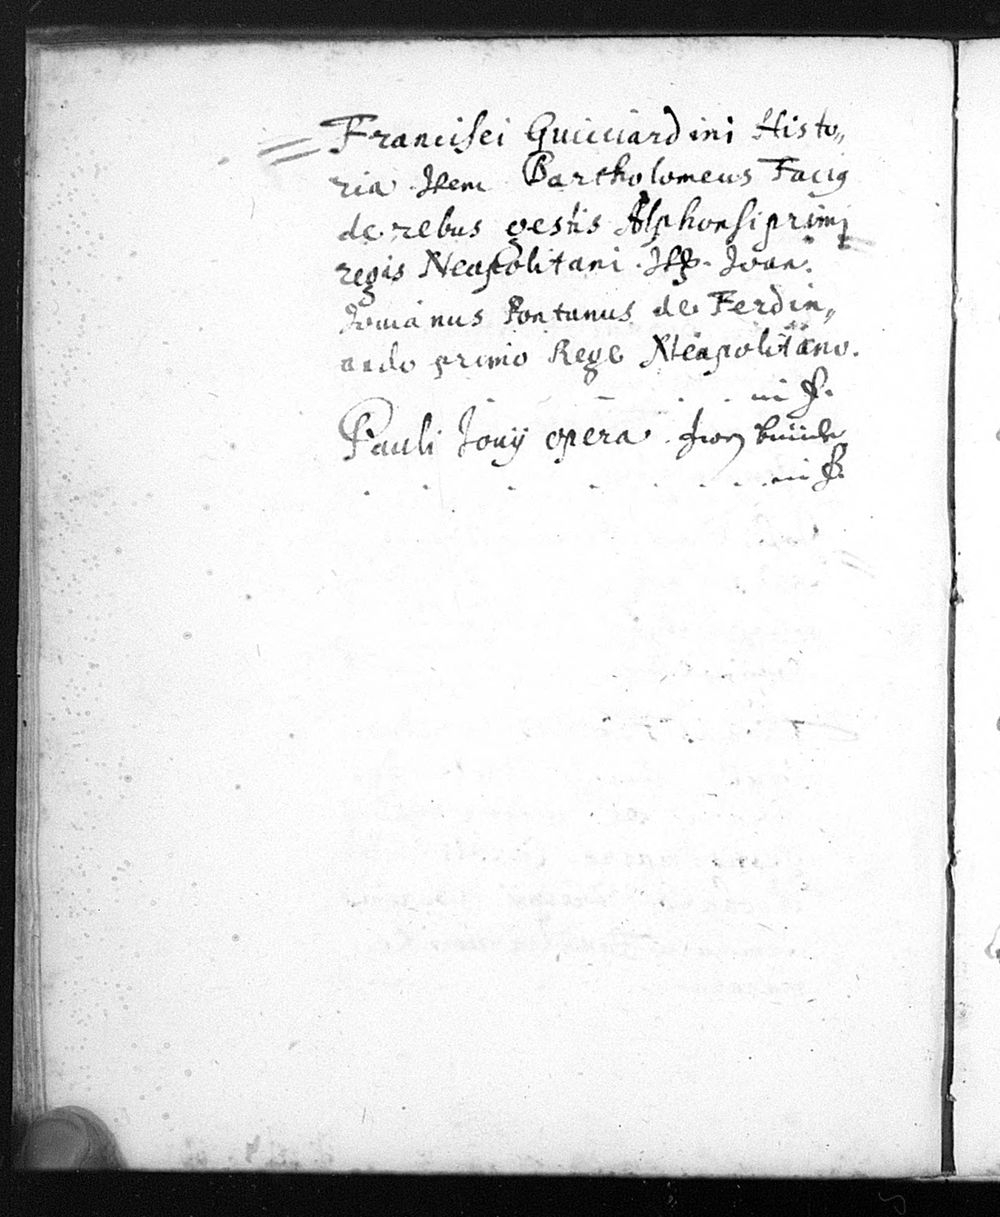 Francisci Guicciardini Histo„
ria. Item Bartholomeus Facig
de rebus gestis Alphonsi primi
regis Neapolitani. Itp. Ioan.
Iouianus Pontanus de Ferdin„
ando primo Rege Neapolitano.
. . . . . iii
Pauli Iouij opera. zwey
. . . . . . . iii